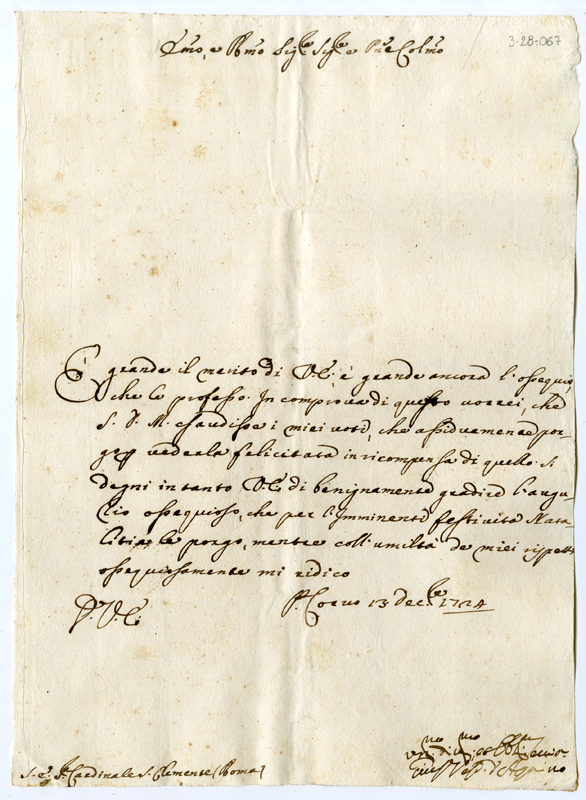 3-28-067
Emo, e Rmo Sigre Sigre e Pne Colmo
È grande il merito di V.E. è grande ancora l'ossequio,
che le professo. In comprova di questo vorrei, che
S. D. M. esaudisse i miei voti, che assiduamente por-
go vederla felicitata in ricompensa di quello. Si
degni intanto V.E. di benignamente gradire l'augu-
rio ossequioso, che per l'imminenti festività Nata-
litie le porgo, mentre coll'umiltà de miei rispetti
ossequiosamente mi ridico
D. V. E.
13 decre 1724
S. e. Sr Cardinale S. Clemente (Roma)